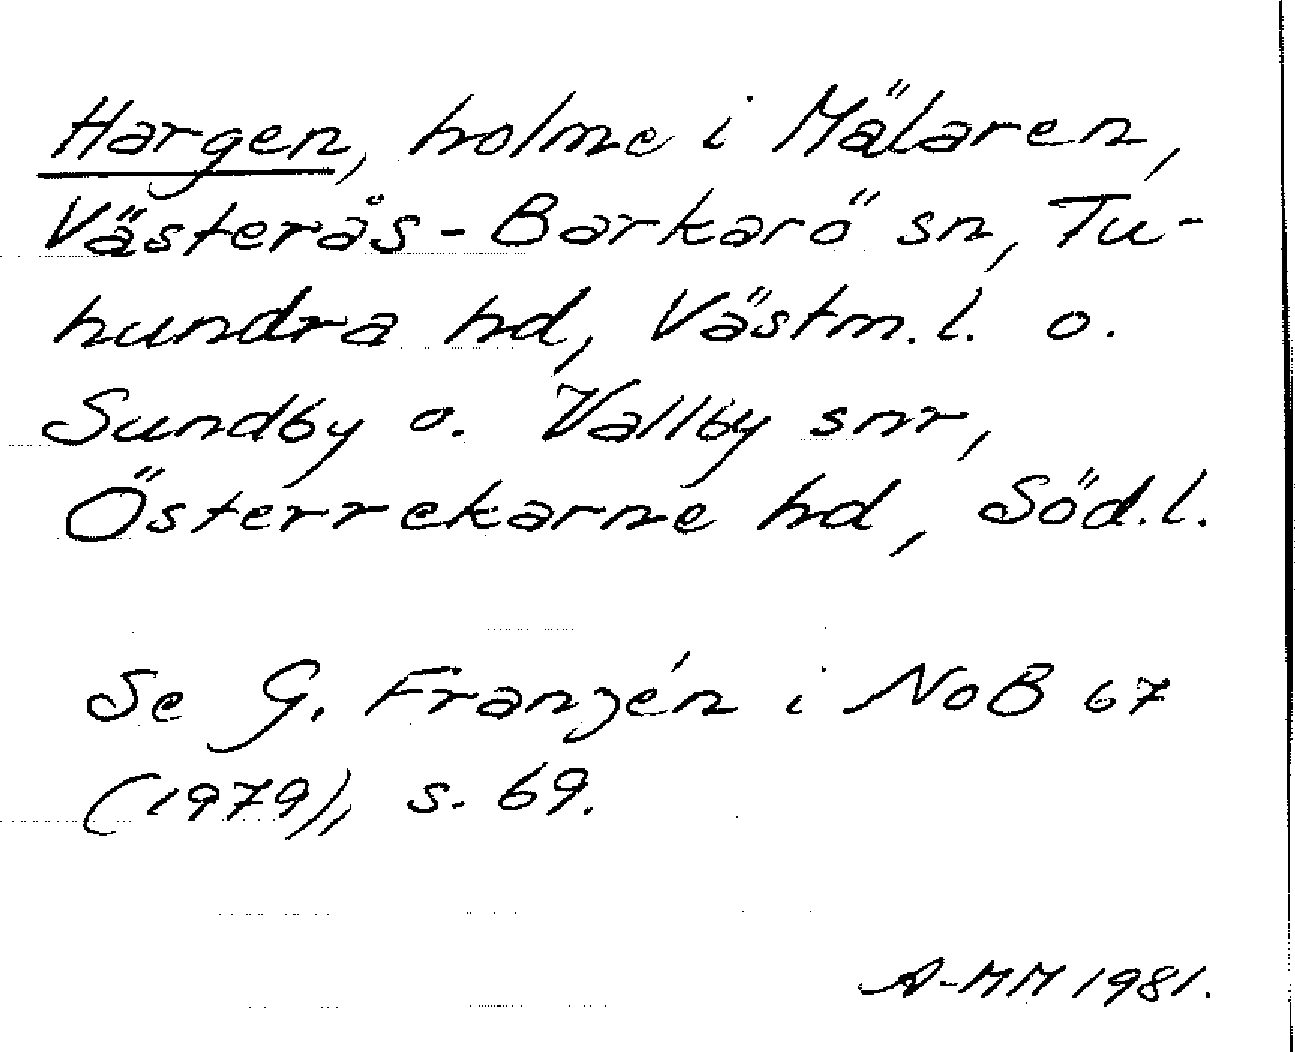 Hargen, holme i Mälaren,
Västerås-Barkarö sn, Tu-
hundra hd, Västm.l. o.
Sundby o. Vallby snr,
Österrekarne hd, Söd.l.
Se G. Franzén i NoB 67
(1979), s. 69.
A-MM 1981.